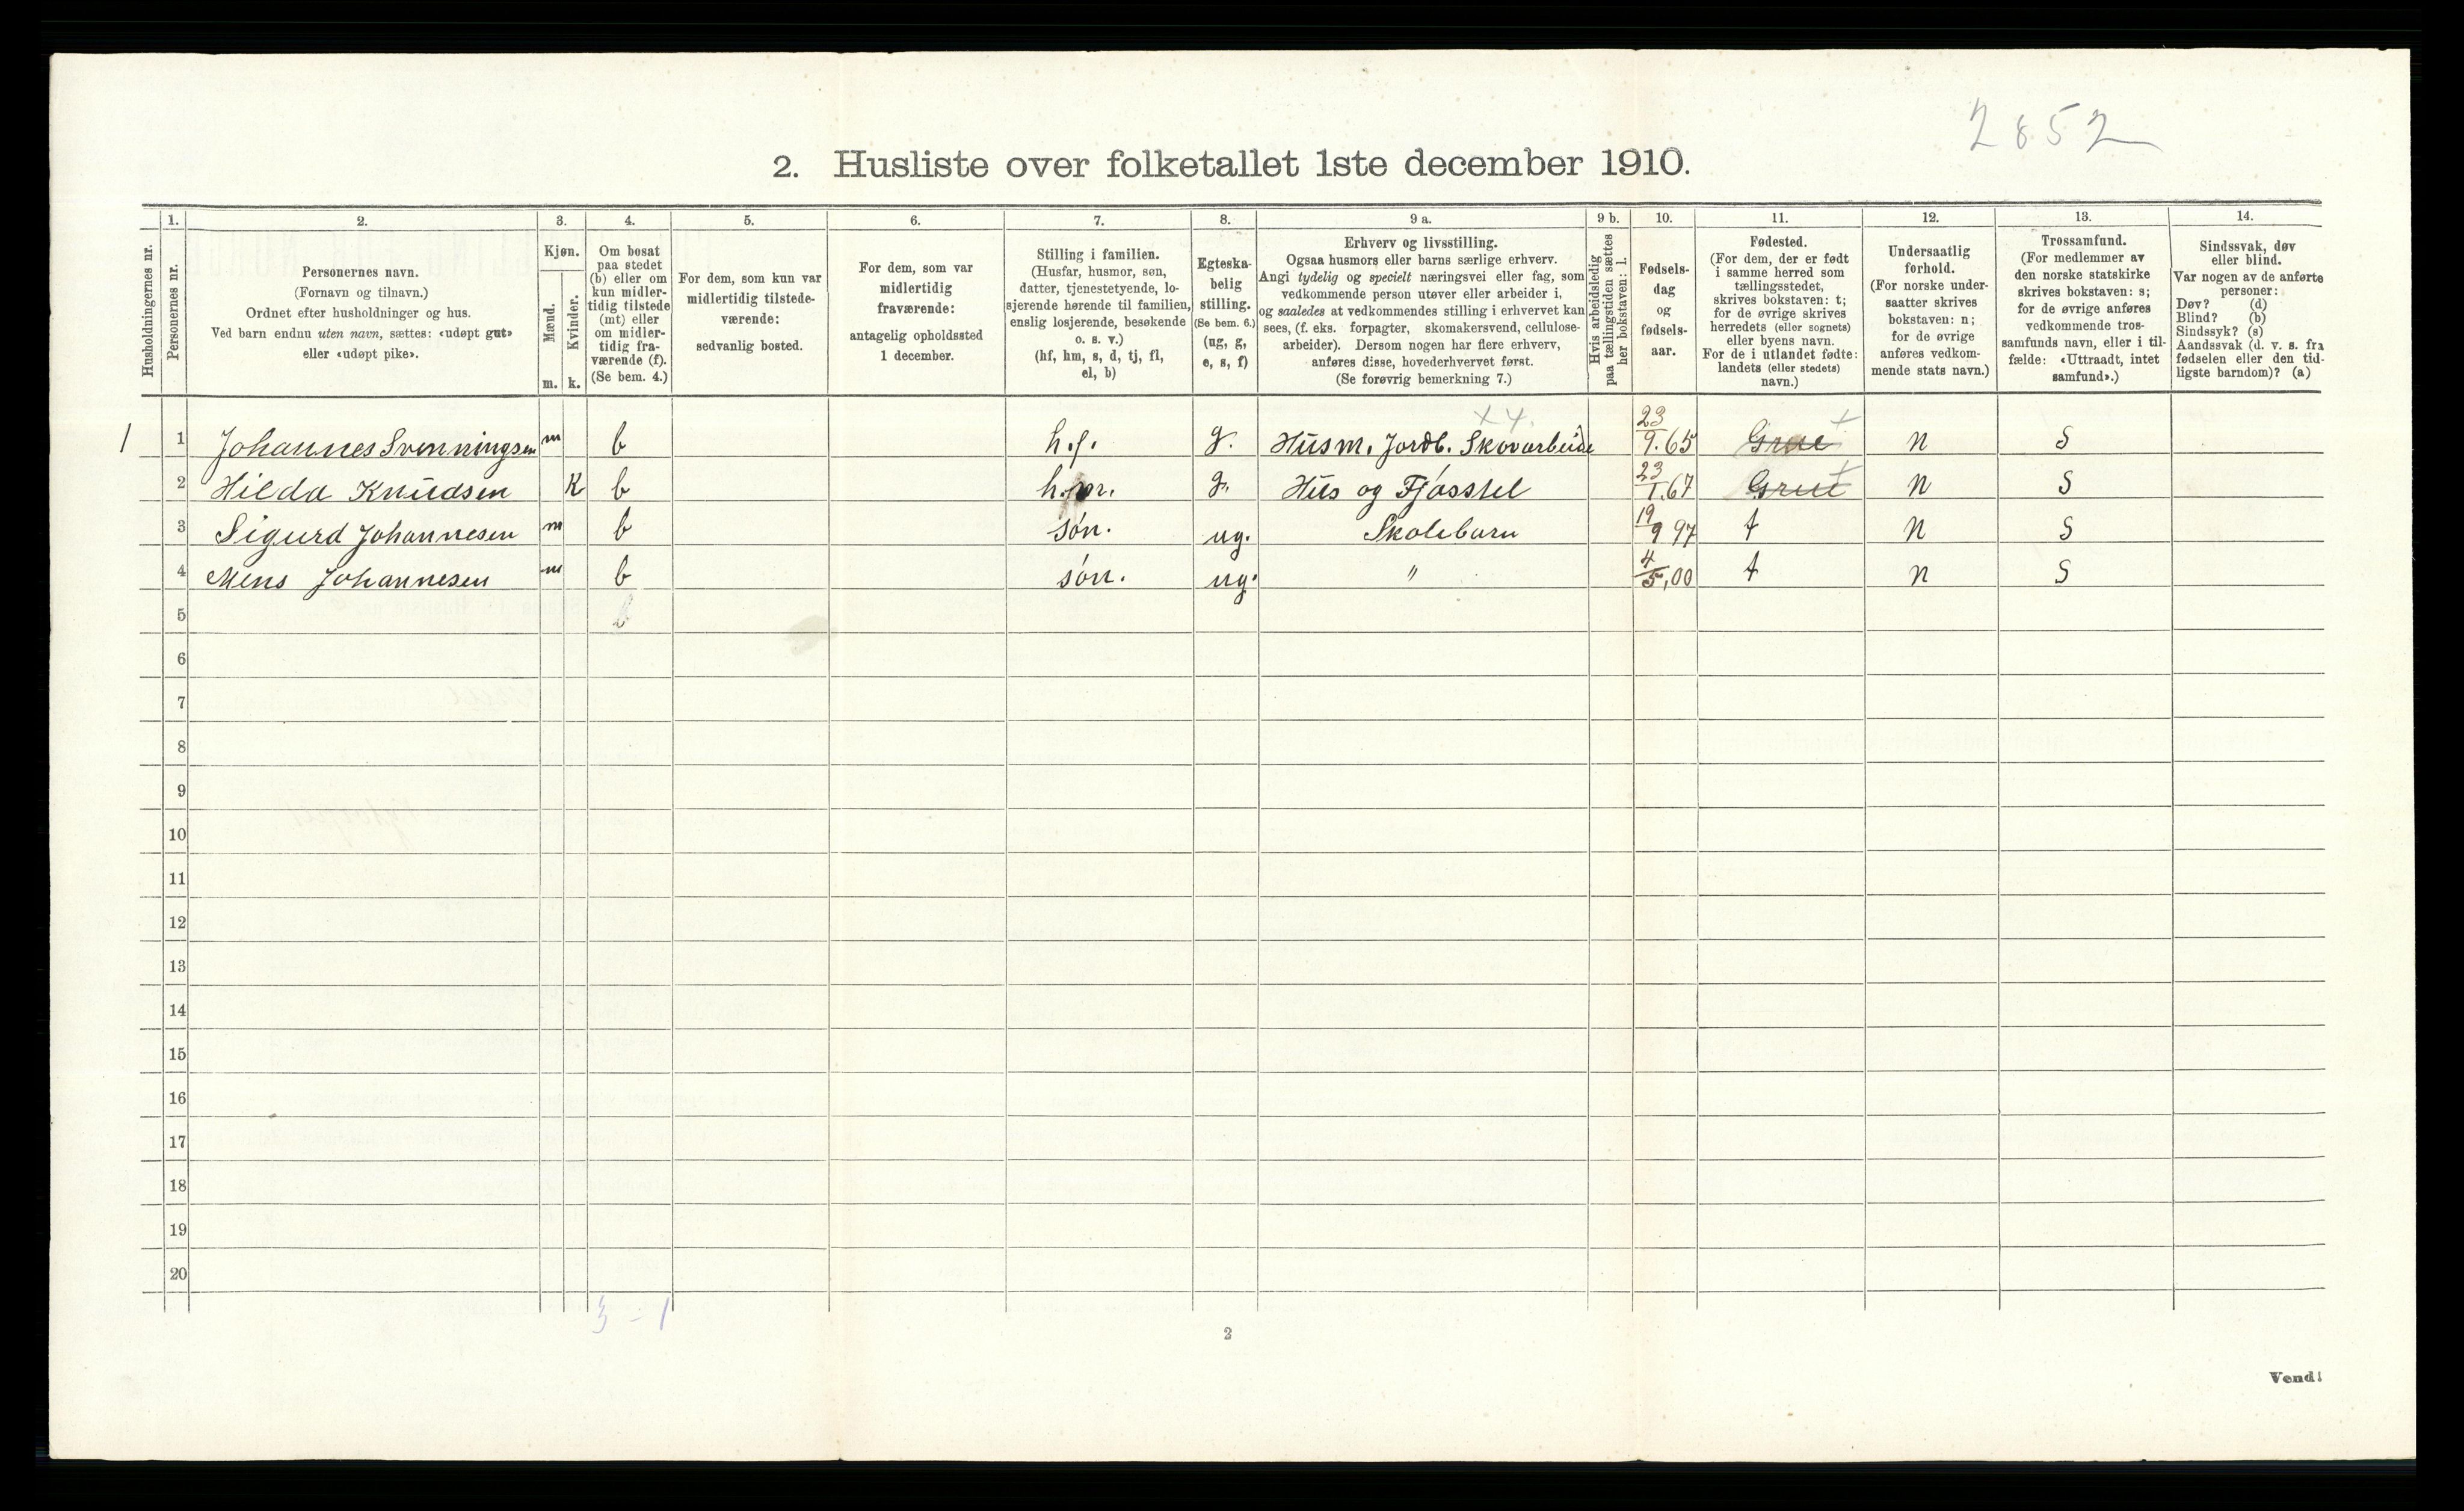 2852
2. Husliste over folketallet 1ste december 1910.
Husholdningernes nr.
1.
Personernes nr.
2.
Personernes navn.
(Fornavn og tilnavn.)
Ordnet efter husholdninger og hus.
Ved barn endnu uten navn, sættes: «udøpt gut»
eller «udøpt pike».
3.
Kjøn.
Mænd.
Kvinder.
m. k.
4.
Om bosat
paa stedet
(b) eller om
kun midler-
tidig tilstede
(mt) eller
om midler-
tidig fra-
værende (f).
(Se bem. 4.)
5.
For dem, som kun var
midlertidig tilstede-
værende:
sedvanlig bosted.
6.
For dem, som var
midlertidig
fraværende:
antagelig opholdssted
1 december.
7.
Stilling i familien.
(Husfar, husmor, søn,
datter, tjenestetyende, lo-
sjerende hørende til familien,
enslig losjerende, besøkende
o. s. v.)
(hf, hm, s, d, tj, fl,
el, b)
8.
Egteska-
belig
stilling.
(Se bem. 6.)
(ug, g,
e, s, f)
9 a.
Erhverv og livsstilling.
Ogsaa husmors eller barns særlige erhverv.
Angi tydelig og specielt næringsvei eller fag, som
vedkommende person utøver eller arbeider i,
og saaledes at vedkommendes stilling i erhvervet kan
sees, (f. eks. forpagter, skomakersvend, cellulose-
arbeider). Dersom nogen har flere erhverv,
anføres disse, hovederhvervet først.
(Se forøvrig bemerkning 7.)
9 b.
Hvis arbeidsledig
paa tællingstiden sættes
her bokstaven: l.
10.
Fødsels-
dag
og
fødsels-
aar.
11.
Fødested.
(For dem, der er født
i samme herred som
tællingsstedet,
skrives bokstaven: t;
for de øvrige skrives
herredets (eller sognets)
eller byens navn.
For de i utlandet fødte:
landets (eller stedets)
navn.)
12.
Undersaatlig
forhold.
(For norske under-
saatter skrives
bokstaven: n;
for de øvrige
anføres vedkom-
mende stats navn.)
13.
Trossamfund.
(For medlemmer av
den norske statskirke
skrives bokstaven: s;
for de øvrige anføres
vedkommende tros-
samfunds navn, eller i til-
fælde: «Uttraadt, intet
samfund».)
14.
Sindssvak, døv
eller blind.
Var nogen av de anførte
personer:
Døv? (d)
Blind? (b)
Sindssyk? (s)
Aandssvak (d. v. s. fra
fødselen eller den tid-
ligste barndom)? (a)
x 4.
1 1 Johannes Svenningsen m b h.f. g. Husm. Jordb. Skovarbeide 23/9.65 Grue t n S
2 Hilda Knudsen K b h.m. g. Hus og Fjøsstel 23/1.67 Grue t n S
3 Sigurd Johannesen m b søn. ug. Skolebarn 19/9 97 t n S
4 Mens Johannesen m b søn. ug. " 4/5,00 t n S
5 b
6
7
8
9
10
11
12
13
14
15
16
17
18
19
20
3 - 1
2
Vend!